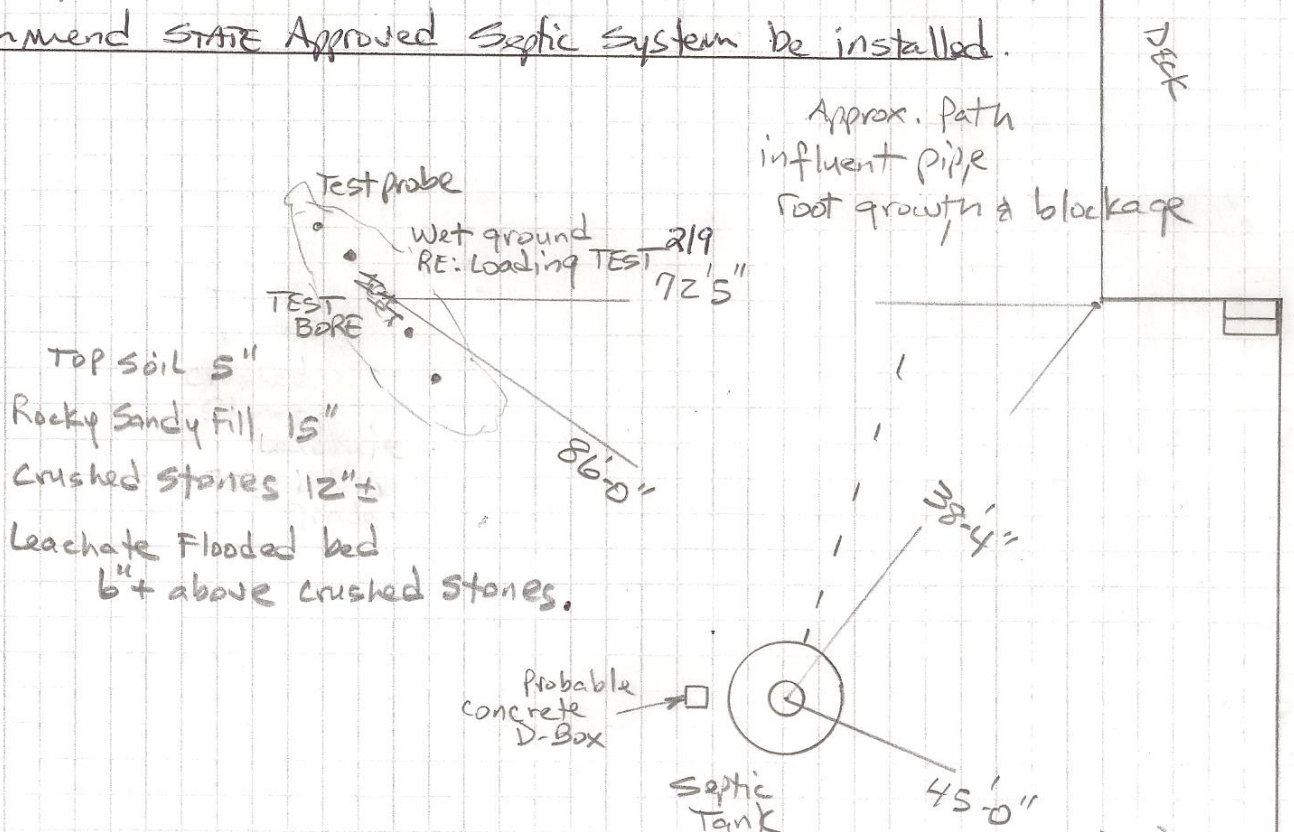 mmend STATE Approved Septic System be installed.
Deck
Approx. Path
influent pipe
root growth & blockage
Test probe
Wet ground
RE: Loading TEST 2/9
72'5"
TEST
BORE
TOP Soil 5"
Rocky Sandy Fill 15"
Crushed Stones 12"±
Leachate Flooded bed
6"+ above crushed stones.
86'-0"
38'-4"
Probable
concrete
D-Box
Septic
Tank
45'-0"